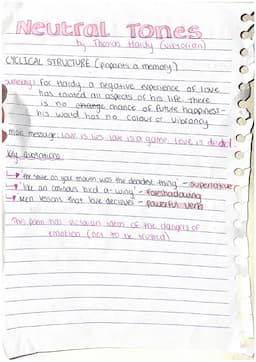 Neutral Tones
by Thomas Hardy (victorian)
CYCLICAL STRUCTURE (pinpoints a memory)
Summary: For Hardy, a negative experience of love
has tainted all aspects of his life. There
is no change chance of future happiness -
his world has no colour or vibrancy
main message: love is lies love is a game; love is
key quotations:
the smile on your mouth was the deadest thing' - superlative
'like an ominous bird a-wing' - foreshadowing
'keen lessons that love deceives' - powerful verb
This poem has victorian ideas of the dangers of
emotion (not to be trusted)